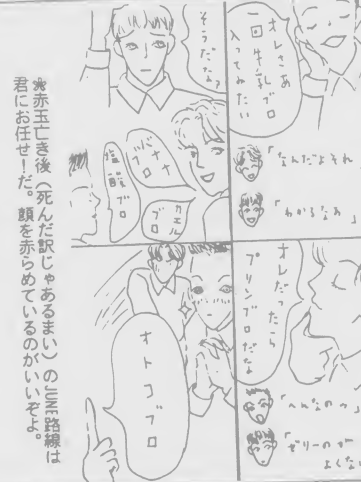 オレさあ
一回牛乳ブロ
入ってみたい
「なんだよそれ
「わかるなあ
そうだなァ
バナナ
ブロ
塩酸ブロ
カエル
ブロ
オレだったら
プリンブロだな
「へんなのっ
「ゼリーのが
よくない
オトコブロ
❀赤玉亡き後（死んだ訳じゃあるまい）のJUNE路線は
君にお任せ！だ。顔を赤らめているのがいいぞよ。